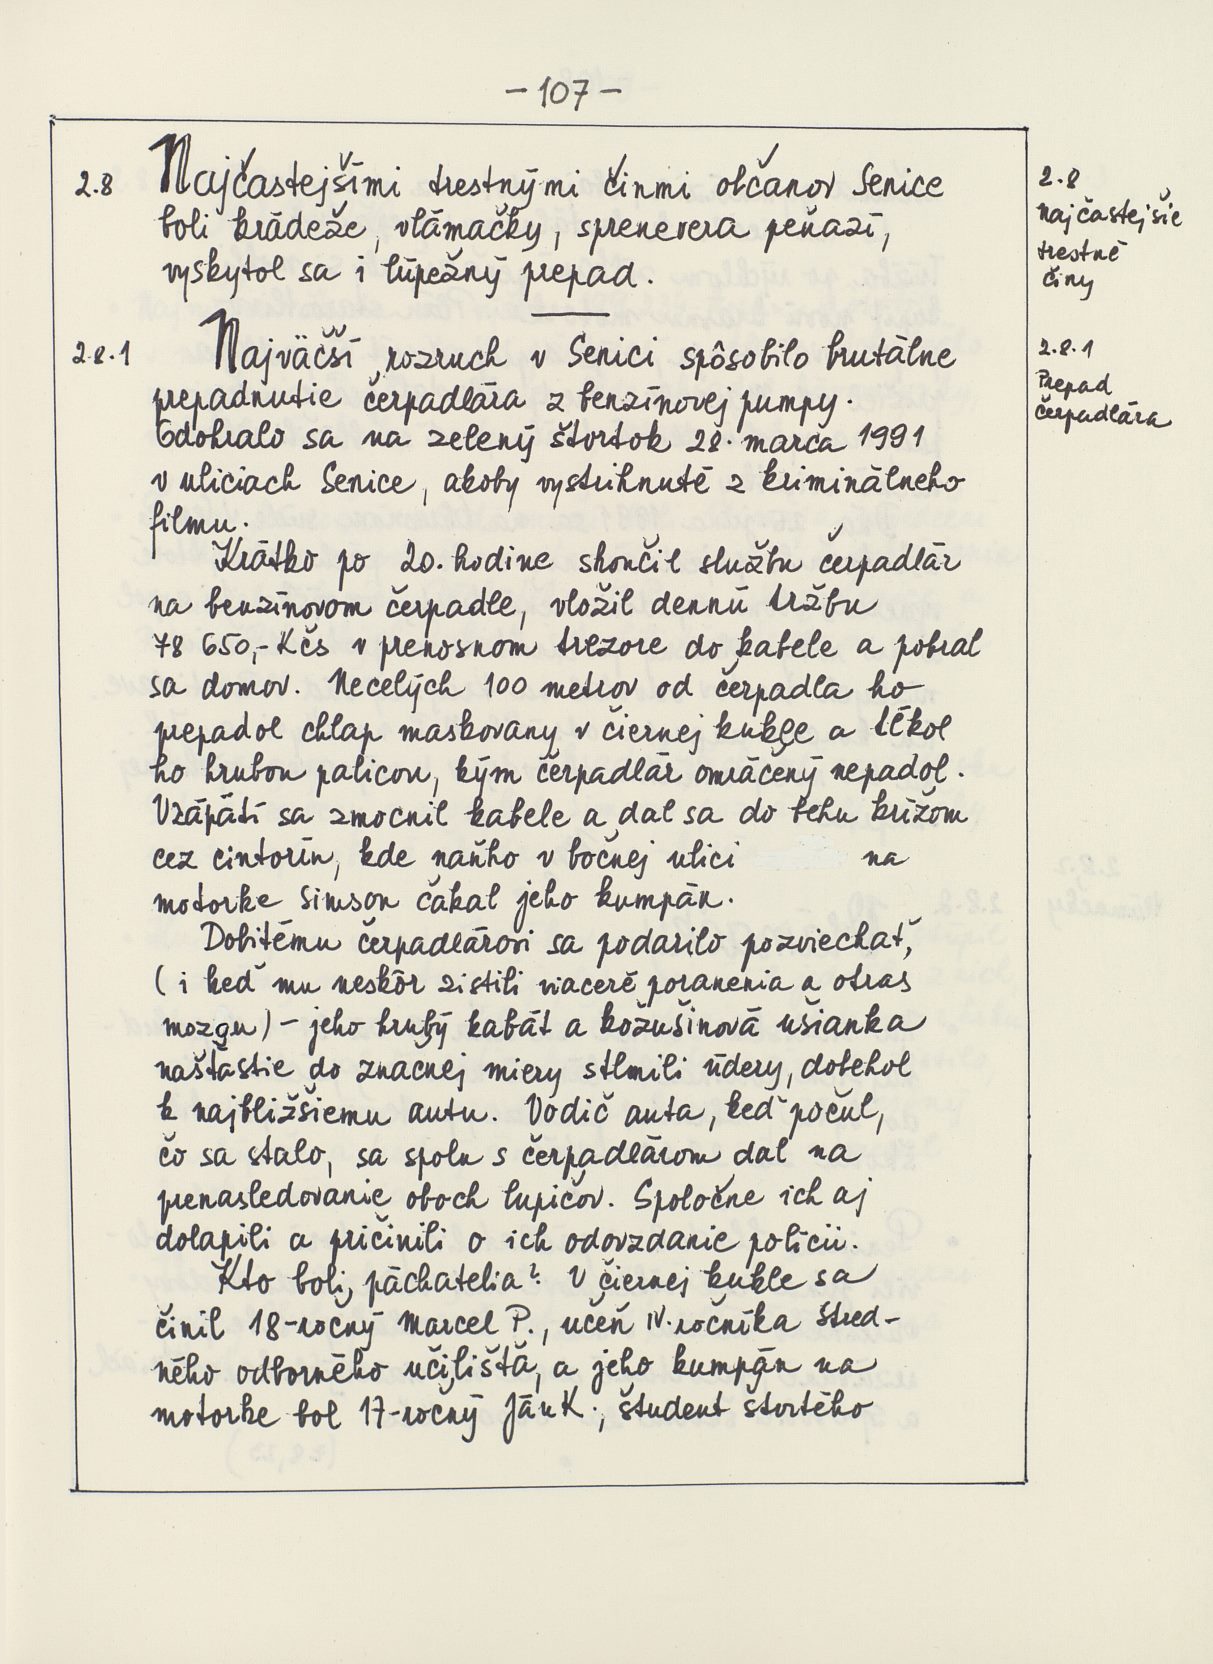 - 107 -
2.8 Najčastejšími trestnými činmi občanov Senice
boli krádeže, vlámačky, sprenevera peňazí,
vyskytol sa i lúpežný prepad.
2.8
najčastejšie
trestné
činy
2.8.1 Najväčší rozruch v Senici spôsobilo brutálne
prepadnutie čerpadlára z benzínovej pumpy.
Odohralo sa na zelený štvrtok 28. marca 1991
v uliciach Senice, akoby vystrihnuté z kriminálneho
filmu.
2.8.1
Prepad
čerpadlára
Krátko po 20. hodine skončil službu čerpadlár
na benzínovom čerpadle, vložil dennú tržbu
78 650,- Kčs v prenosnom trezore do kabele a pobral
sa domov. Necelých 100 metrov od čerpadla ho
prepadol chlap maskovany v čiernej kukle a tĺkol
ho hrubou palicou, kým čerpadlár omráčený nepadol.
Vzápätí sa zmocnil kabele a dal sa do behu krížom
cez cintorín, kde naňho v bočnej ulici na
motorke Simson čakal jeho kumpán.
Dobitému čerpadlárovi sa podarilo pozviechať,
(i keď mu neskôr zistili viaceré poranenia a otras
mozgu) - jeho hrubý kabát a kožušinová ušianka
našťastie do značnej miery stlmili údery, dobehol
k najbližšiemu autu. Vodič auta, keď počul,
čo sa stalo, sa spolu s čerpadlárom dal na
prenasledovanie oboch lupičov. Spoločne ich aj
dolapili a pričinili o ich odovzdanie polícii.
Kto boli páchatelia? V čiernej kukle sa
činil 18-ročný Marcel P., učeň IV. ročníka stred-
ného odborného učilišťa, a jeho kumpán na
motorke bol 17-ročný Ján K., študent štvrtého